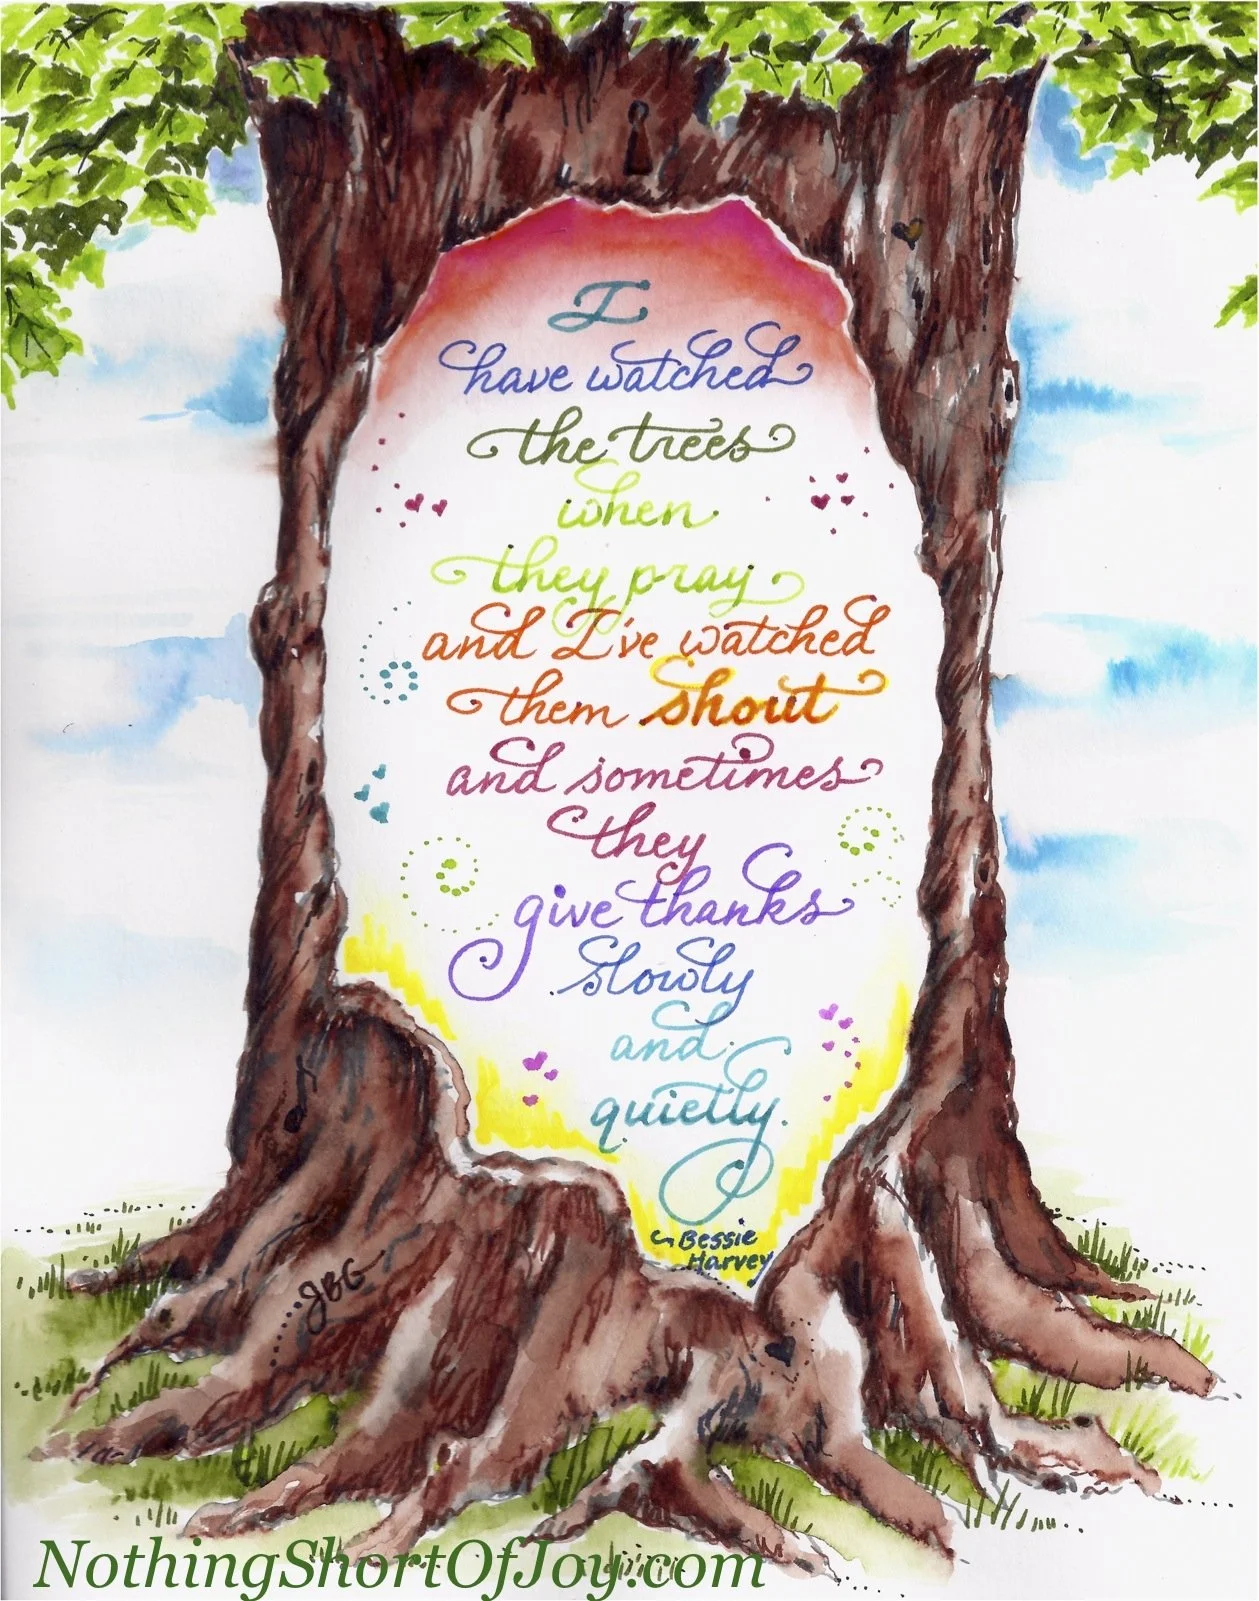 I
have watched
the trees
when
they pray
and I've watched
them shout
and sometimes
they
give thanks
slowly
and
quietly.
~Bessie
Harvey
JBG
NothingShortOfJoy.com